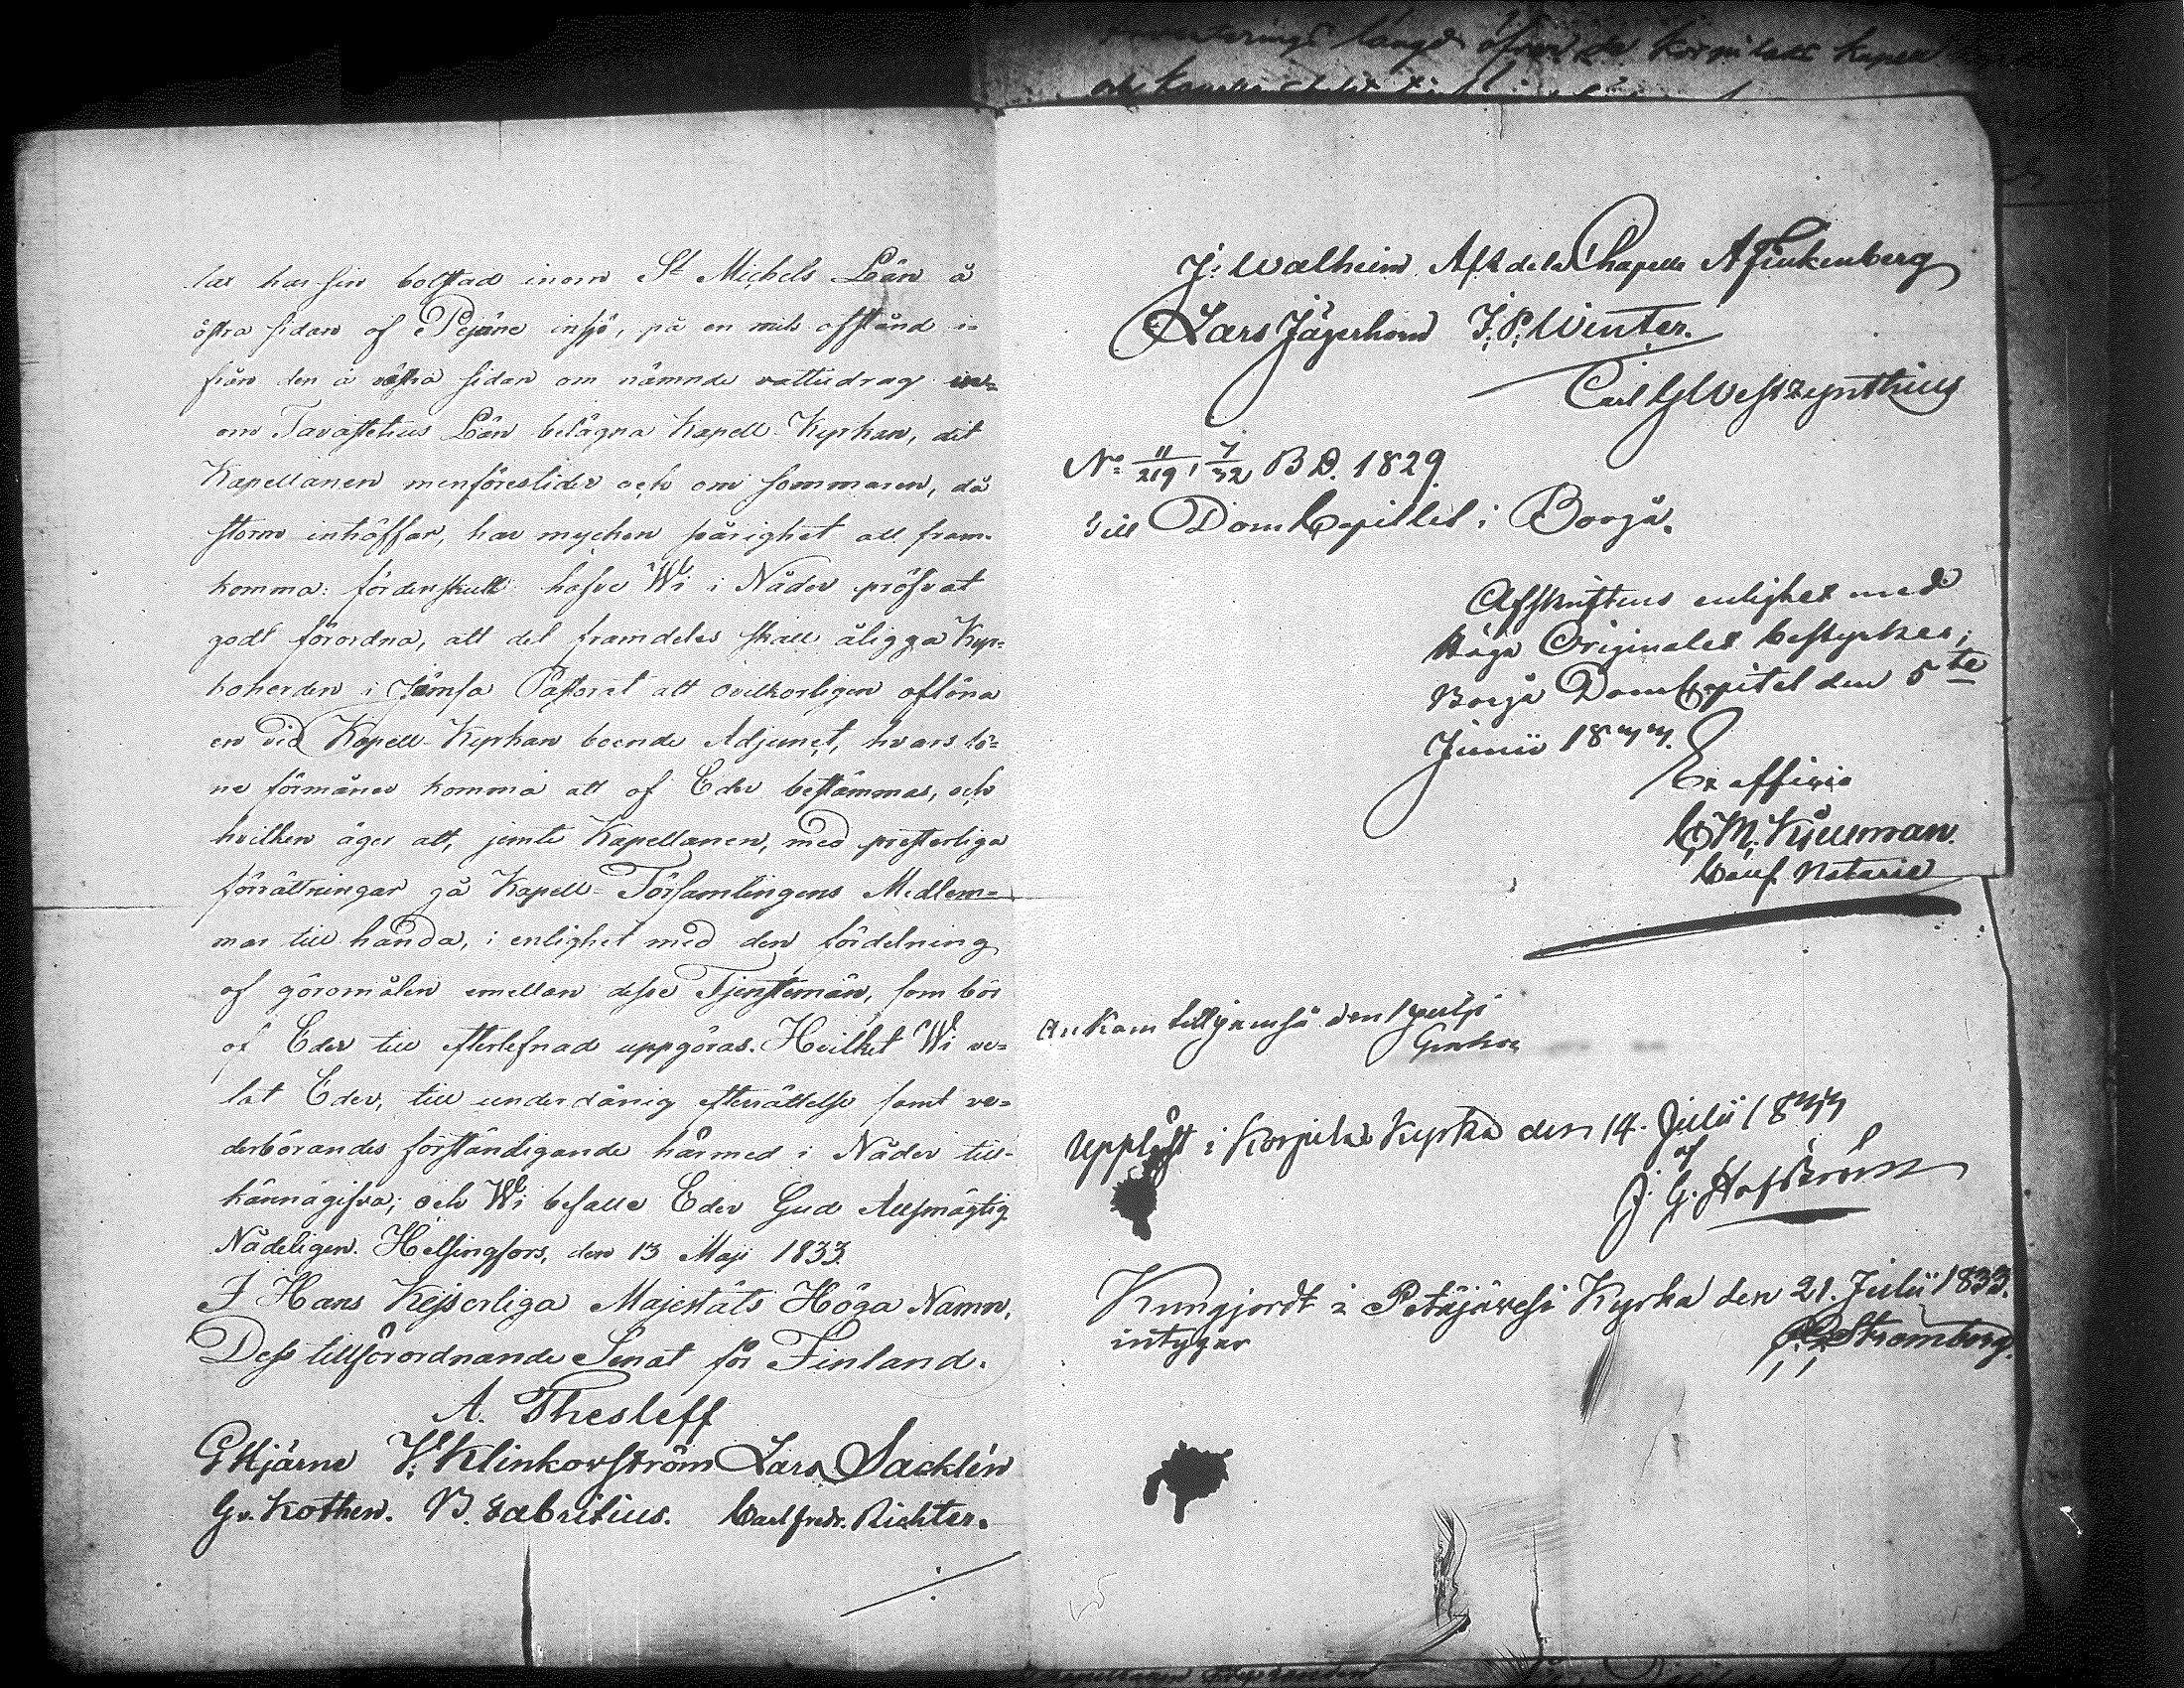 lar har sin bolstad inom St Michels Län å
östra sidan af Pejäne insjö, på en mils afstånd i-
från den å västra sidan om nämnde vattudrag in-
om Tavastehus Län belägna Kapell-Kyrkan, dit
Kapellanen menförestider och om sommaren, då
storm inträffar, har mycken svårighet att fram-
komma: fördenskull hafve Wi i Nåder pröfvat
godt förordna, att det framdeles skall åligga Kyr-
koherden i Jämsa Pastorat att ovilkorligen aflöna
en vid Kapell-Kyrkan boende Adjunct, hvars lö-
ne förmåner komma att af Eder bestämmas, och
hvilken äger att, jemte Kapellanen, med presterliga
förrättningar gå Kapell-Församlingens Medlem-
mar till handa, i enlighet med den fördelning
af göromålen emellan desse Tjenstemän, som bör
af Eder till efterlefnad uppgöras. Hvilket Wi ve-
lat Eder, till underdånig efterrättelse samt ve-
derbörandes förständigande härmed i Nåder till-
kännagifva; och Wi befalle Eder Gud Allsmägtig
Nådeligen. Helsingfors, den 13 Maji 1833.
I Hans Kejserliga Majestäts Höga Namn,
Dess tillförordnande Senat för Finland.
A. Thesleff
G Hjärne V. Klinkowström Lars Sacklén
G v. Kothen. B. Fabritius. Carl Fredr. Richter.
J. Walheim Aft de la Chapelle A Finkenberg
Lars Jägerhorn J. P. Winter.
Carl G Westzynthius
No 11/219, 7/32 B D. 1829
Till Dom Capitlet i Borgå.
Afskriftens enlighet med
Höga Originalet bestyrkes;
Borgå Dom Capitel den 5te
Junii 1833.
Ex officio
C. M. Kjellman.
Conf. Notarie
Ankom till Jemsä den
Upplåst i Korpilax Kyrka den 14. Julii 1833
af
J. G. Hafström
Kungjordt i Petäjävesi Kyrka den 21. Julii 1833.
intygar
Stromberg.